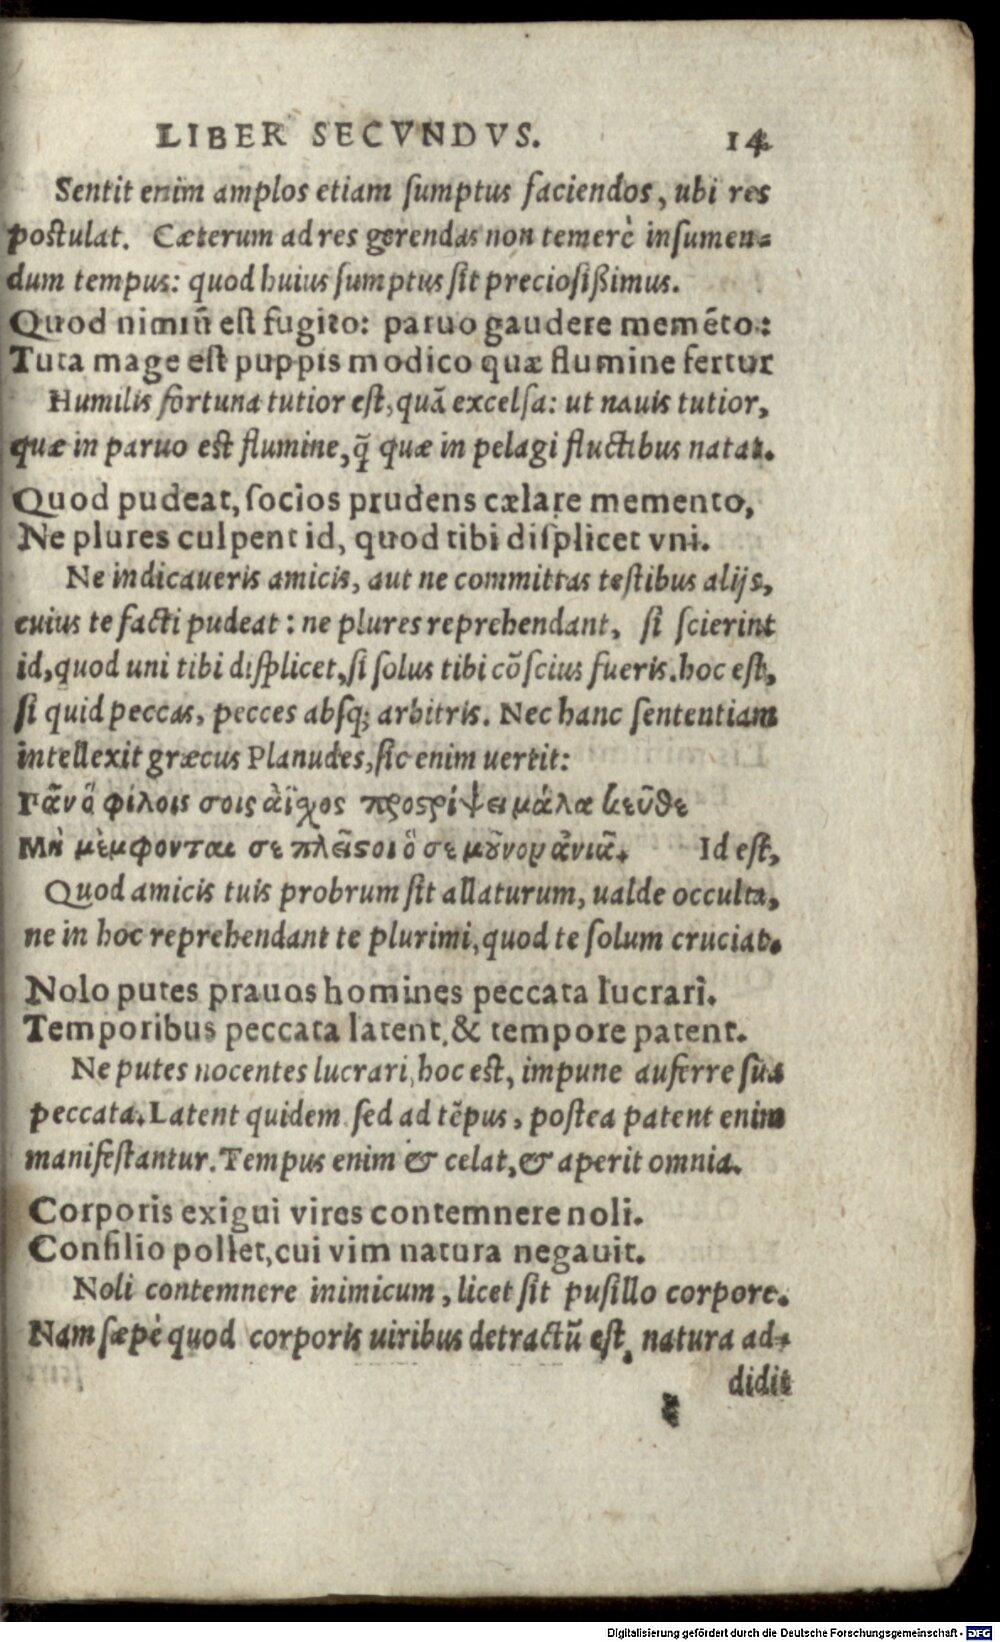 LIBER SECVNDVS. 14
Sentit enim amplos etiam ſumptus faciendos, ubi res
poſtulat. Cæterum ad res gerendas non temerè inſumen-
dum tempus: quod huius ſumptus ſit precioſiſsimus.
Quod nimiũ eſt fugito: paruo gaudere memẽto:
Tuta mage eſt puppis modico quæ flumine fertur
Humilis fortuna tutior eſt, quã excelſa: ut nauis tutior,
quæ in paruo eſt flumine, q̃ quæ in pelagi fluctibus natat.
Quod pudeat, ſocios prudens cælare memento,
Ne plures culpent id, quod tibi diſplicet vni.
Ne indicaueris amicis, aut ne committas teſtibus alijs,
cuius te facti pudeat: ne plures reprehendant, ſi ſcierint
id, quod uni tibi diſplicet, ſi ſolus tibi cõſcius fueris. hoc eſt,
ſi quid peccas, pecces abſq; arbitris. Nec hanc ſententiam
intellexit græcus Planudes, ſic enim uertit:
Γᾶν ὃ φίλοις σοις ἀῖχος προςρίψει μάλα κεῦθε
Μὴ μὲμφονται σε πλεῖςοι ὃ σε μοῦνον ἀνιᾶ. Id eſt,
Quod amicis tuis probrum ſit allaturum, ualde occulta,
ne in hoc reprehendant te plurimi, quod te ſolum cruciat.
Nolo putes prauos homines peccata lucrari.
Temporibus peccata latent, & tempore patent.
Ne putes nocentes lucrari, hoc eſt, impune auferre ſua
peccata. Latent quidem ſed ad tẽpus, poſtea patent enim
manifeſtantur. Tempus enim & celat, & aperit omnia.
Corporis exigui vires contemnere noli.
Conſilio pollet, cui vim natura negauit.
Noli contemnere inimicum, licet ſit puſillo corpore.
Nam ſæpè quod corporis uiribus detractũ eſt, natura ad-
didit
Digitalisierung gefördert durch die Deutsche Forschungsgemeinschaft - DFG